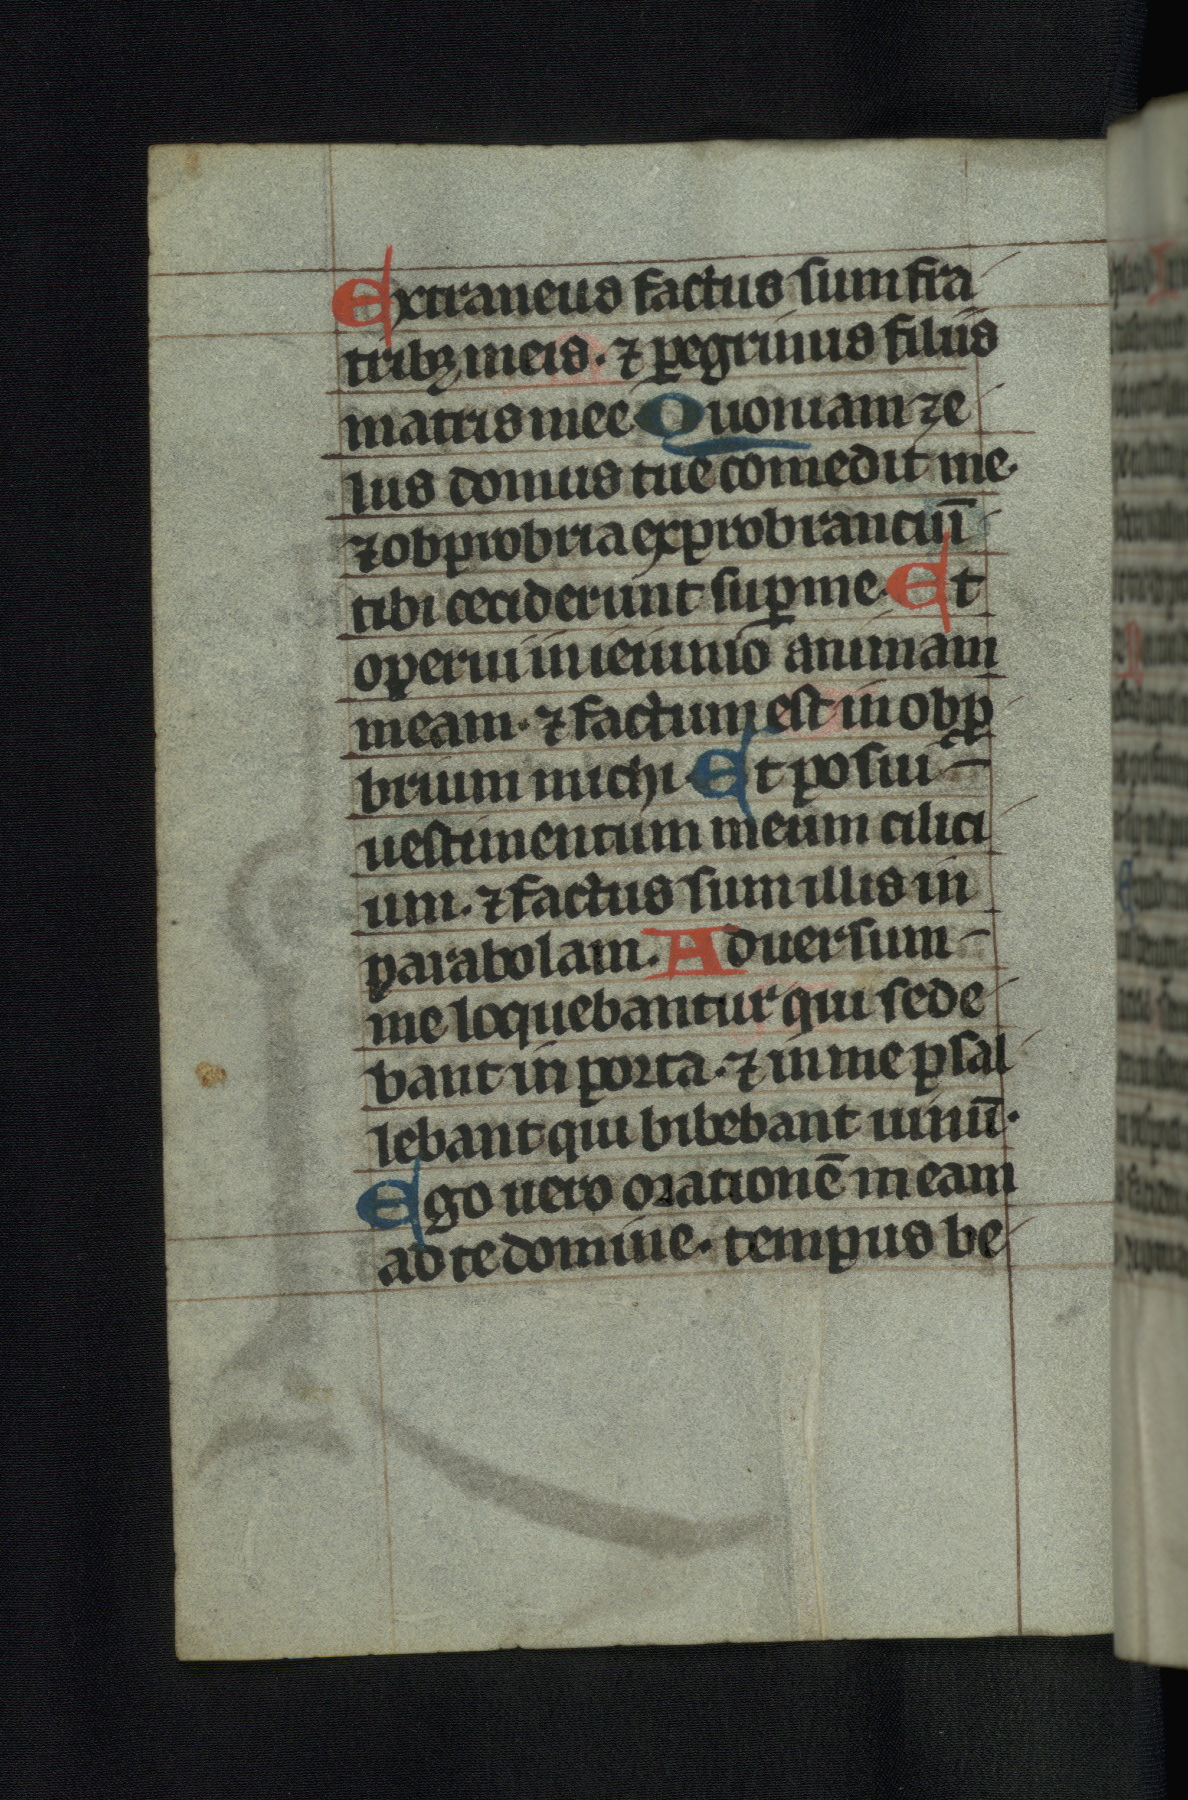 Extraneus factus sum fra
tribꝫ meis· ⁊ ꝑegrinus filiis
matris mee Quoniam ze
lus domus tue comedit me·
⁊ obprobria exprobranciū
tibi ceciderunt suꝑ me· Et
oꝑerui in ieiunio animam
meam· ⁊ factum est in obꝓ
brium michi· Et posui
uestimentum meum cilici
um· ⁊ factus sum illis in
parabolam· Aduersum
me loquebantur qui sede
bant in porta· ⁊ in me psal
lebant qui bibebant uinū·
Ego uero orationē meam
ad te domine· tempus be